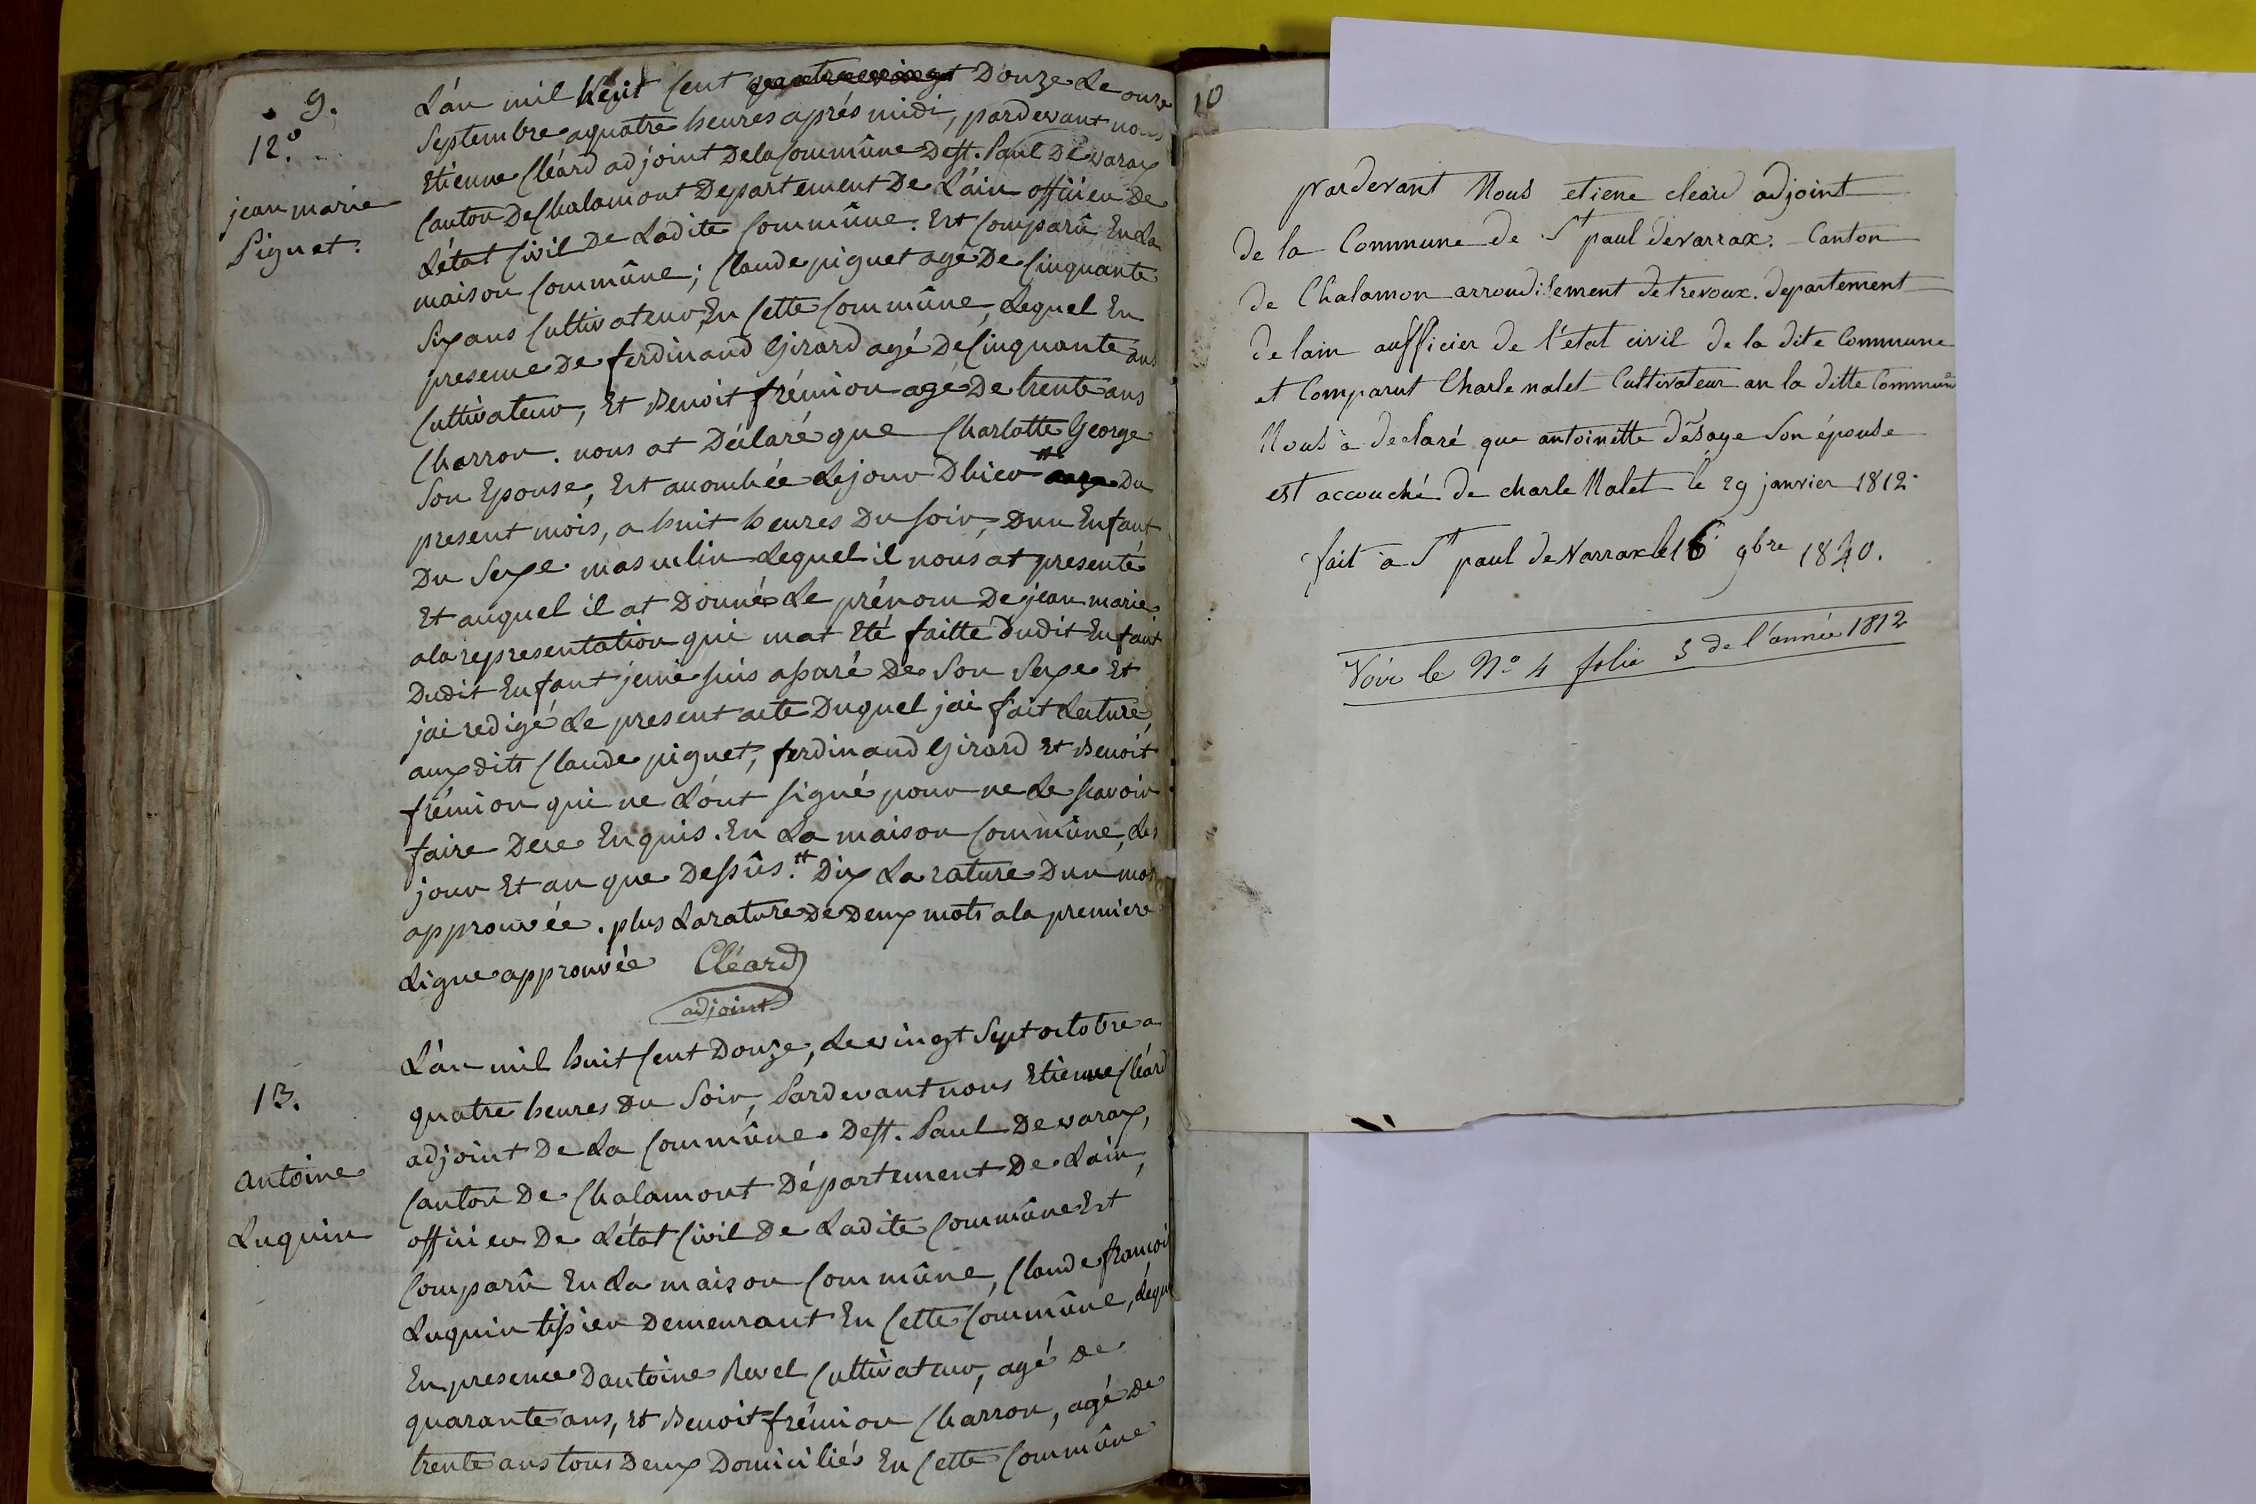 9.
12.°
jean marie
Piguet.
L'án mil huit Cent quatre vingt Douze Le onze
Septembre a quatre heures aprés midi, pardevant nous
Etienne Cléard adjoint De la Commûne De St. Paul De varax
Canton De Chalamont Departement De L'ain officier De
L'état Civil De Ladite Commûne. Est Comparû En La
maison Commûne; Claude piguet agé De Cinquante
Six ans Cultivateur En Cette Commûne, Lequel En
presence De ferdinand Girard agé De Cinquante ans
Cultivateur, Et Benoit frémion agé De trente ans
Charron. nous at Déclaré que Charlotte George
Son Epouse, Est accouchée Le jour D'hier # Du
present mois, a huit heures Du soir, D'un Enfant
Du Sexe masculin Lequel il nous at presenté
Et auquel il at Donné Le prénom De jean marie
a la representation qui m'at Eté faitte Dudit Enfant
Dudit Enfant je me suis assuré De Son Sexe Et
j'ai redigé Le present acte Duquel j'ai fait Lecture,
aux dits Claude piguet, ferdinand Girard Et Benoit
frémion qui ne L'ont signé pour ne Le scavoir
faire De ce Enquis. En La maison Commûne, Les
jour Et an que Dessûs. # Dix La rature D'un mot
approuvée. plus La rature De Deux mots a la premiere
Ligne approuvée Cléard
adjoint
13.
antoine
Luquin
L'án mil huit Cent Douze, Le vingt Sept octobre a
quatre heures Du Soir, Pardevant nous Etienne Cléard
adjoint De La Commûne De St. Paul De varax,
Canton De Chalamont Département De L'ain,
officier De L'état Civil De Ladite Commûne Est
Comparû En La maison Commûne, Claude françois
Luquin tissier Demeurant En Cette Commûne, Lequel
En presence D'antoine Revel Cultivateur, agé De
quarante ans, Et Benoit frémion Charron, agé De
trente ans tous Deux Domiciliés En Cette Commûne
10
pardevant Nous etiene cleard adjoint
de la Commune de St paul devarrax. Canton
de Chalamon arroudisement de trevoux. departement
de lain aufficier de l'état civil de la dite Commune
et Comparut Charle nalet Cultivateur an la ditte Commune
Nous à declaré que antoinette désaye Son épouse
est accouché de charle Nalet le 29 janvier 1812.
fait à St paul de Varrax le 16 9bre 1840.
Voir le N° 4 folio 3 de l'année 1812